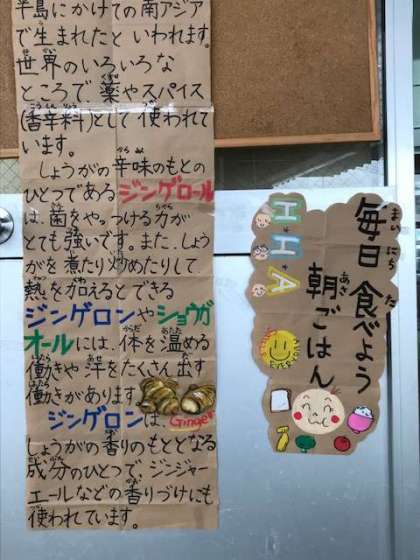 半島にかけての南アジア
で生まれたと いわれます。
世界のいろいろな
ところで、薬やスパイス
(香辛料)として 使われて
います。
しょうがの辛味のもとの
ひとつであるジンゲロール
は、菌をやっつける力が
とても強いです。また、しょう
がを煮たり炒めたりして、
熱を加えるとできる
ジンゲロンやショウガ
オールには、体を温める
働きや 汗をたくさん出す
働きがあります。
Ginger
ジンゲロンは、
しょうがの香りのもととなる
成分のひとつで、ジンジャー
エールなどの香りづけにも
使われています。
毎日 食べよう
朝ごはん